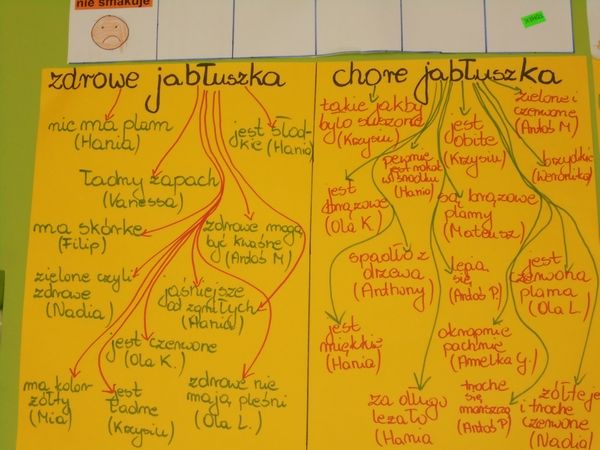 nie smakuje
zdrowe jabłuszka
nic ma plam
(Hania)
jest słod-
kie (Hania)
ładny zapach
(Vanessa)
ma skórkę
(Filip)
zdrowe mogą
być kwaśne
(Antoś M)
zielone czyli
zdrowe
(Nadia)
jaśniejsze
od zgniłych
(Hania)
jest czerwone
(Ola K.)
ma kolor
żółty
(Mia)
jest
ładne
(Krzysiu)
zdrowe nie
mają pleśni
(Ola L.)
chore jabłuszka
takie jakby
było suszone
(Krzysiu)
jest
obite
(Krzysiu)
zielone i
czerwone
(Antoś M)
pewnie
jest robak
w środku
(Hania)
brzydkie
(Weronika)
jest
brązowe
(Ola K.)
są brązowe
plamy
(Mateusz)
spadło z
drzewa
(Anthony)
lepią
się
(Antoś P.)
jest
czerwona
plama
(Ola L.)
jest
miękkie
(Hania)
okropnie
pachnie
(Amelka Y.)
za długo
leżało
(Hania
trochę
się
marszczą
(Antoś P)
żółte je
i trochę
czerwone
(Nadia)